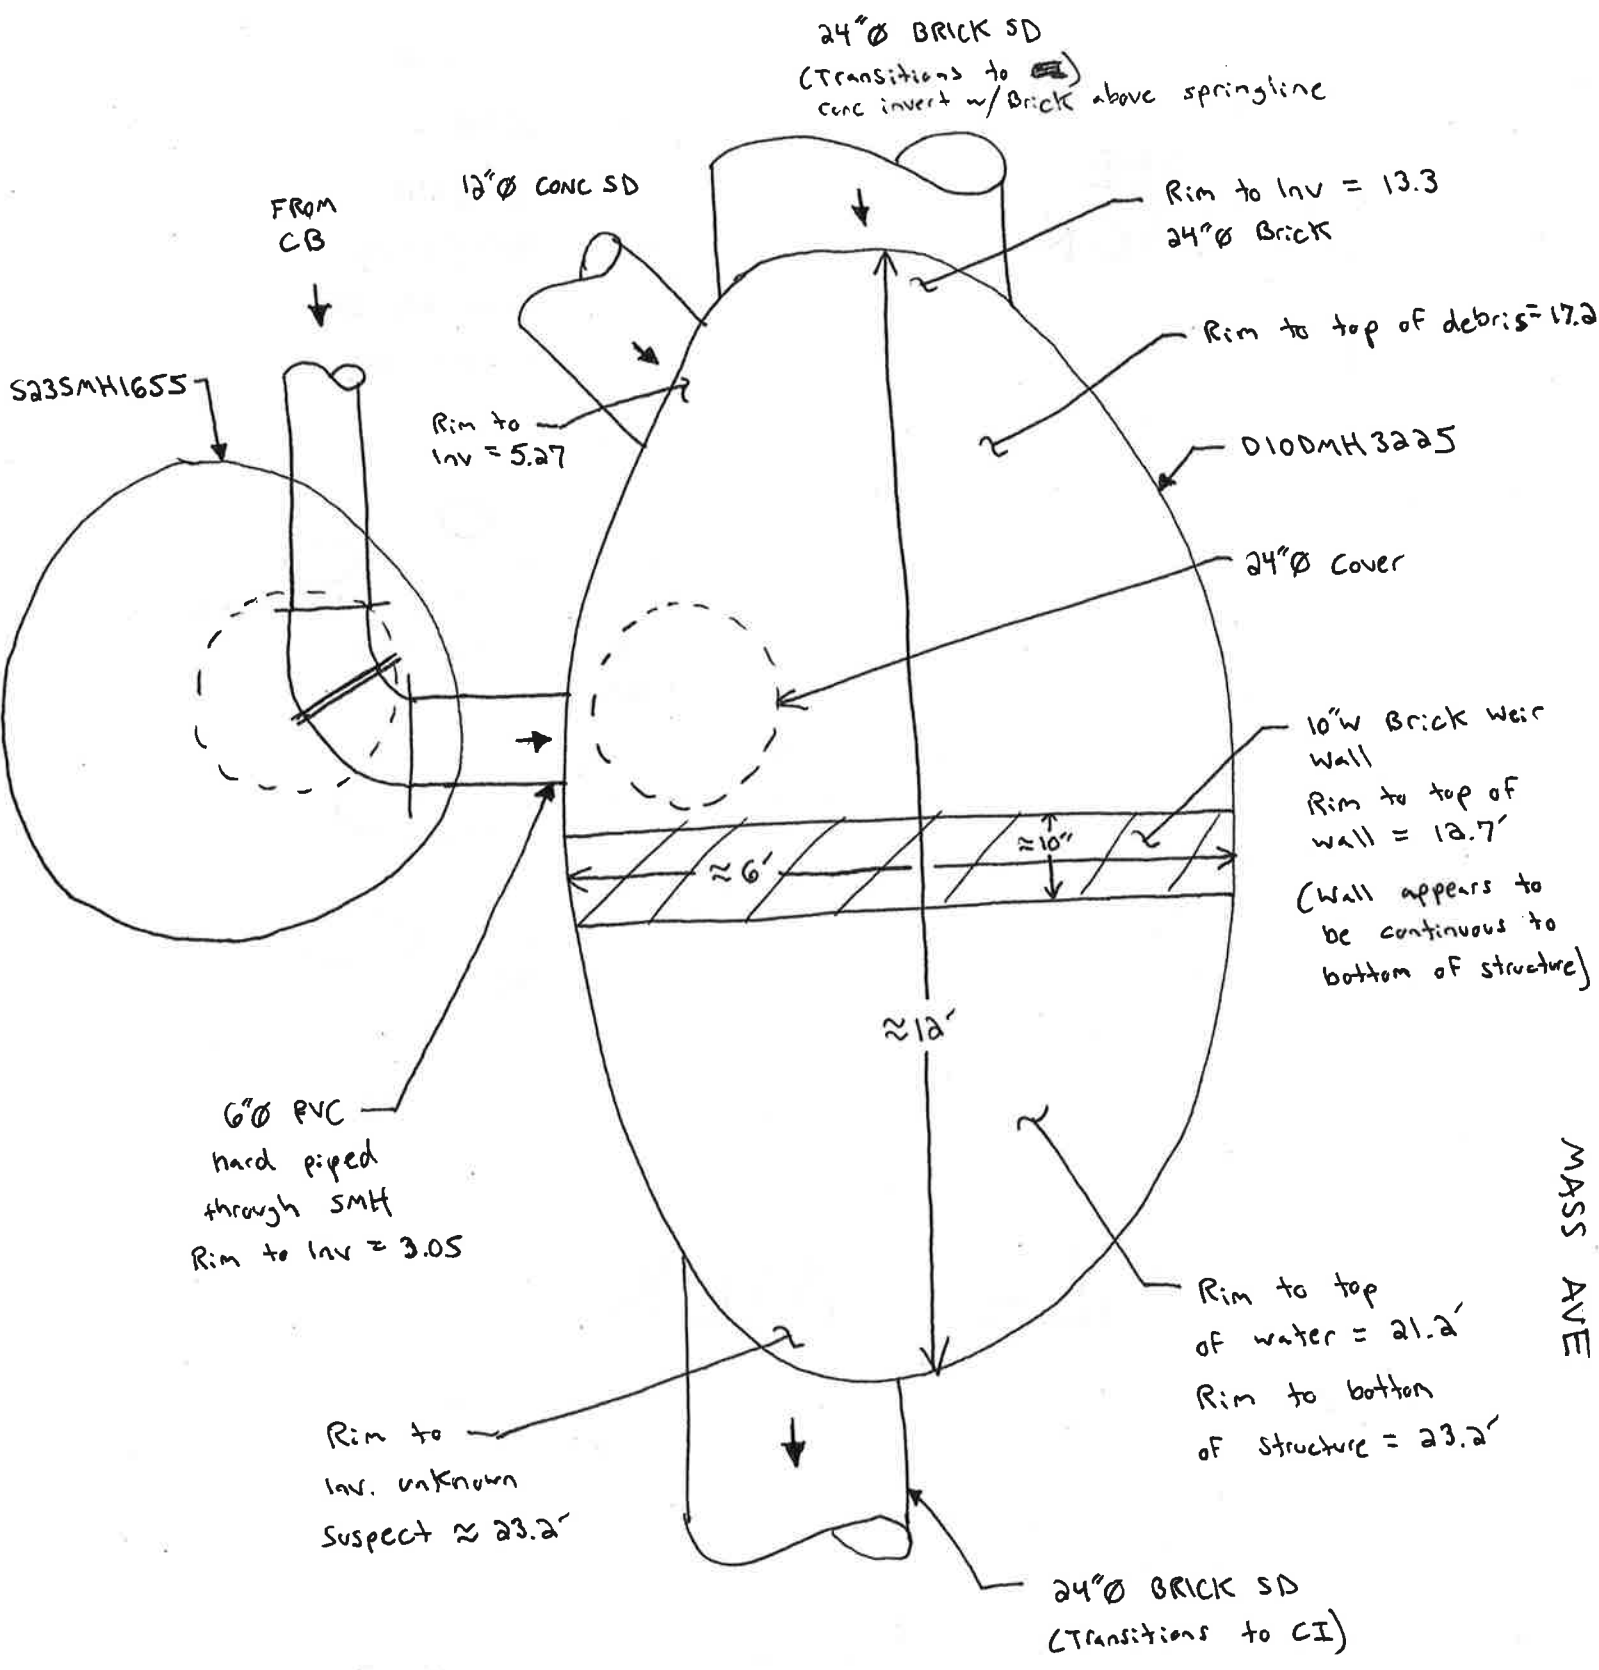 24"Ø BRICK SD
(Transitions to
conc invert w/Brick above springline
12"Ø CONC SD
FROM
CB
Rim to Inv = 13.3
24"Ø Brick
Rim to top of debris = 17.2
S23SMH1655
Rim to
Inv = 5.27
D10DMH3225
24"Ø Cover
10"W Brick Weir
Wall
Rim to top of
wall = 12.7'
(Wall appears to
be continuous to
bottom of structure)
≈10"
≈6'
≈12'
6"Ø PVC
hard piped
through SMH
Rim to Inv = 3.05
MASS AVE
Rim to top
of water = 21.2'
Rim to bottom
of structure = 23.2'
Rim to
Inv. unknown
Suspect ≈ 23.2'
24"Ø BRICK SD
(Transitions to CI)